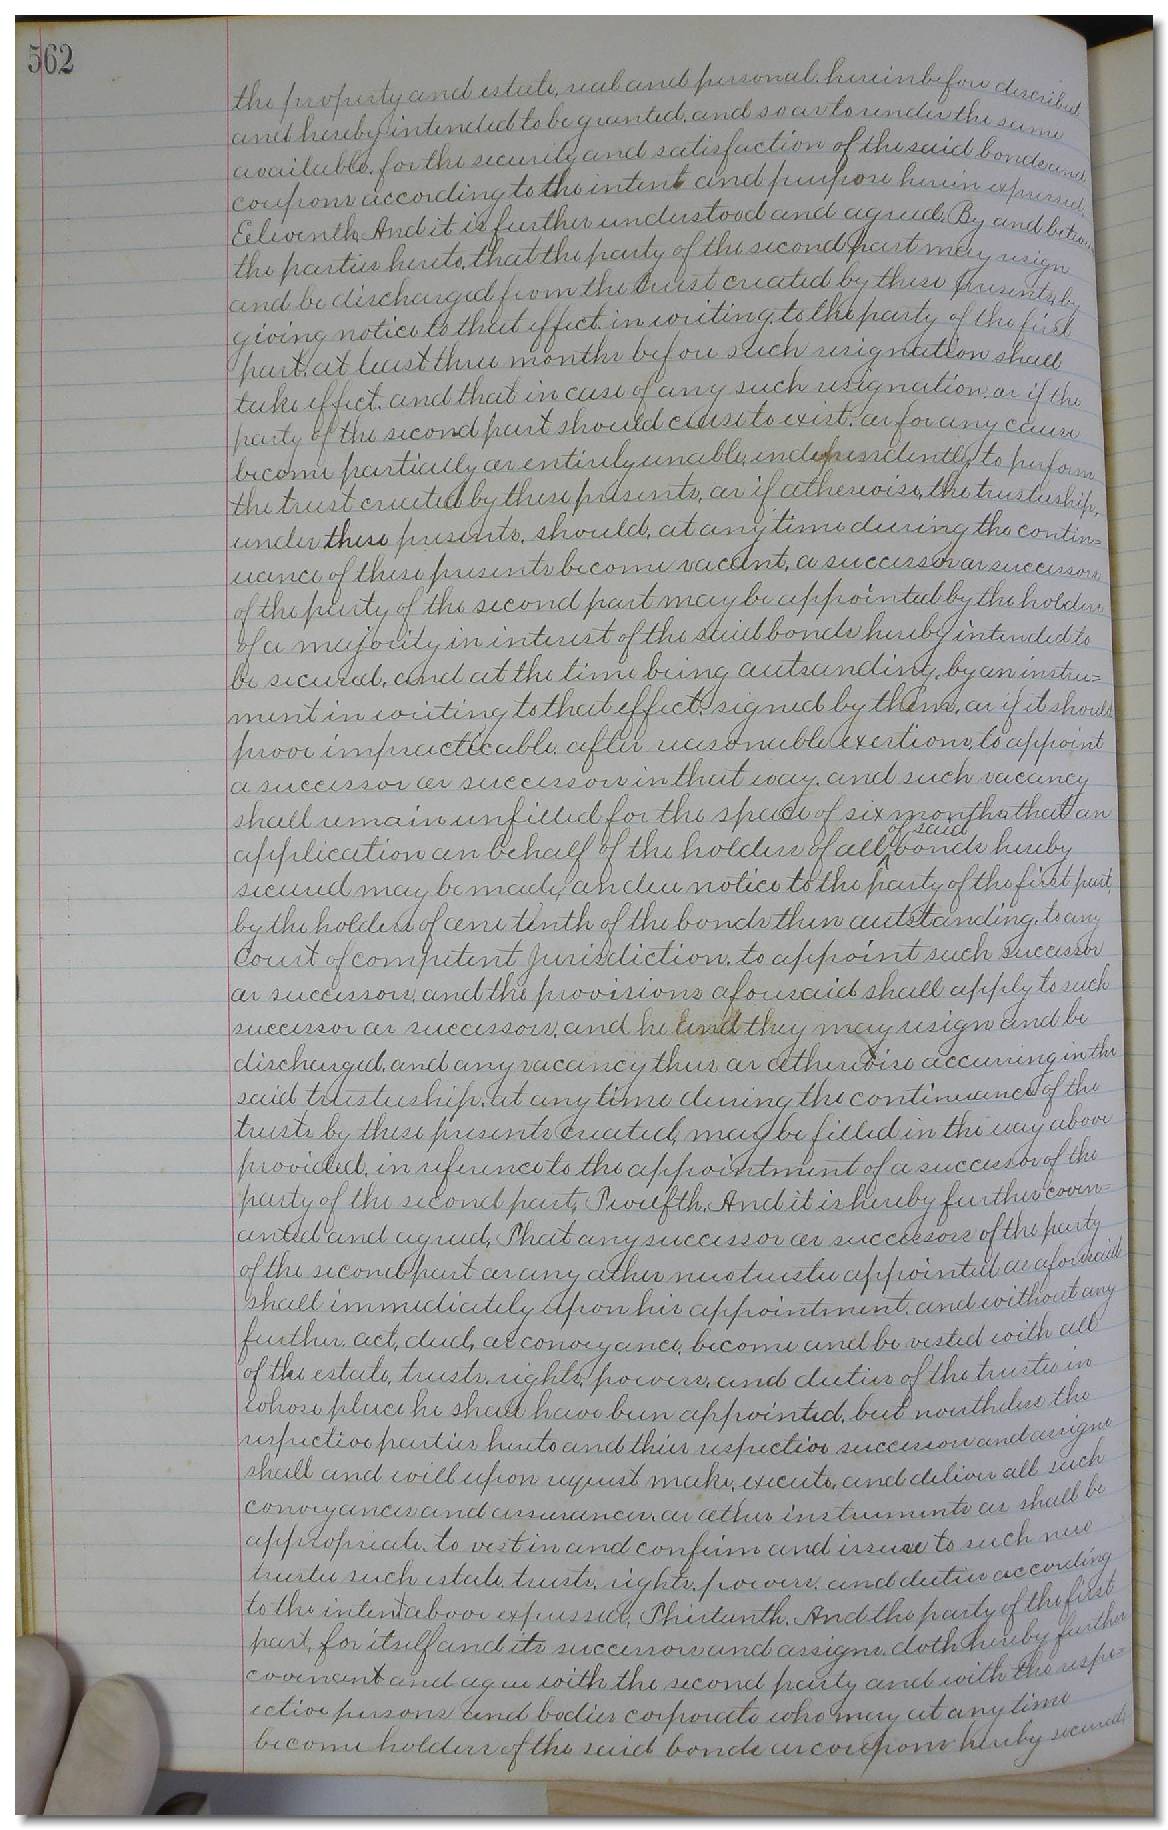 562
the property and estate, real and personal, hereinbefore described
and hereby intended to be granted, and so as to render the same
available, for the security and satisfaction of the said bonds and
coupons according to the intent and purpose herein expressed,
Eeleventh, And it is further understood and agreed, By and between
the parties hereto, that the party of the second part may resign
and be discharged from the trust created by these presents, by
giving notice to that effect in writing, to the party of the first
part, at least three months before such resignation shall
take effect, and that in case of any such resignation, or if the
party of the second part should cease to exist, or for any cause
become partially or entirely unable, independently, to perform
the trust created by these presents, or if otherwise, the trusteeship,
under these presents, should, at any time during the contin=
uance of these presents become vacant, a successor or successors
of the party of the second part may be appointed by the holders
of a majority in interest of the said bonds hereby intended to
be secured, and at the time being outsanding, by an instru=
ment in writing to that effect, signed by them, or if it should
prove impracticable, after reasonable exertions, to appoint
a successor or successors in that way, and such vacancy
shall remain unfilled for the space of six months, that an
application on behalf of the holders of all of said bonds hereby
secured may be made, on due notice to the party of the first part,
by the holders of one tenth of the bonds then outstanding, to any
Court of competent Jurisdiction, to appoint such successor
or successors, and the provisions aforesaid shall apply to such
successor or successors, and he and they may resign and be
discharged, and any vacancy thus or otherwise occurring in the
said trusteeship, at any time during the continuance of the
trusts by these presents created, may be filled in the way above
provided, in reference to the appointment of a successor of the
party of the second part, Twelfth, And it is hereby further coven=
anted and agreed, That any successor or successors of the party
of the second part or any other new trustee appointed as aforesaid
shall immediately upon his appointment, and without any
further act, deed, or conveyance, become and be vested with all
of the estate, trusts, rights, powers, and duties of the trustee in
whose place he shall have been appointed, but nevertheless the
respective parties hereto and their respective successors and assigns
shall and will upon request make, execute, and deliver all such
conveyances and assurances, or other instruments as shall be
appropriate, to vest in and confirm and issue to such new
trustee such estate, trusts, rights, powers, and duties according
to the intent above expressed, Thirteenth, And the party of the first
part, for itself and its successors and assigns, doth hereby further
covenant and agree with the second party and with the respe=
ective persons and bodies corporate who may at any time
become holders of the said bonds or coupons hereby secured,